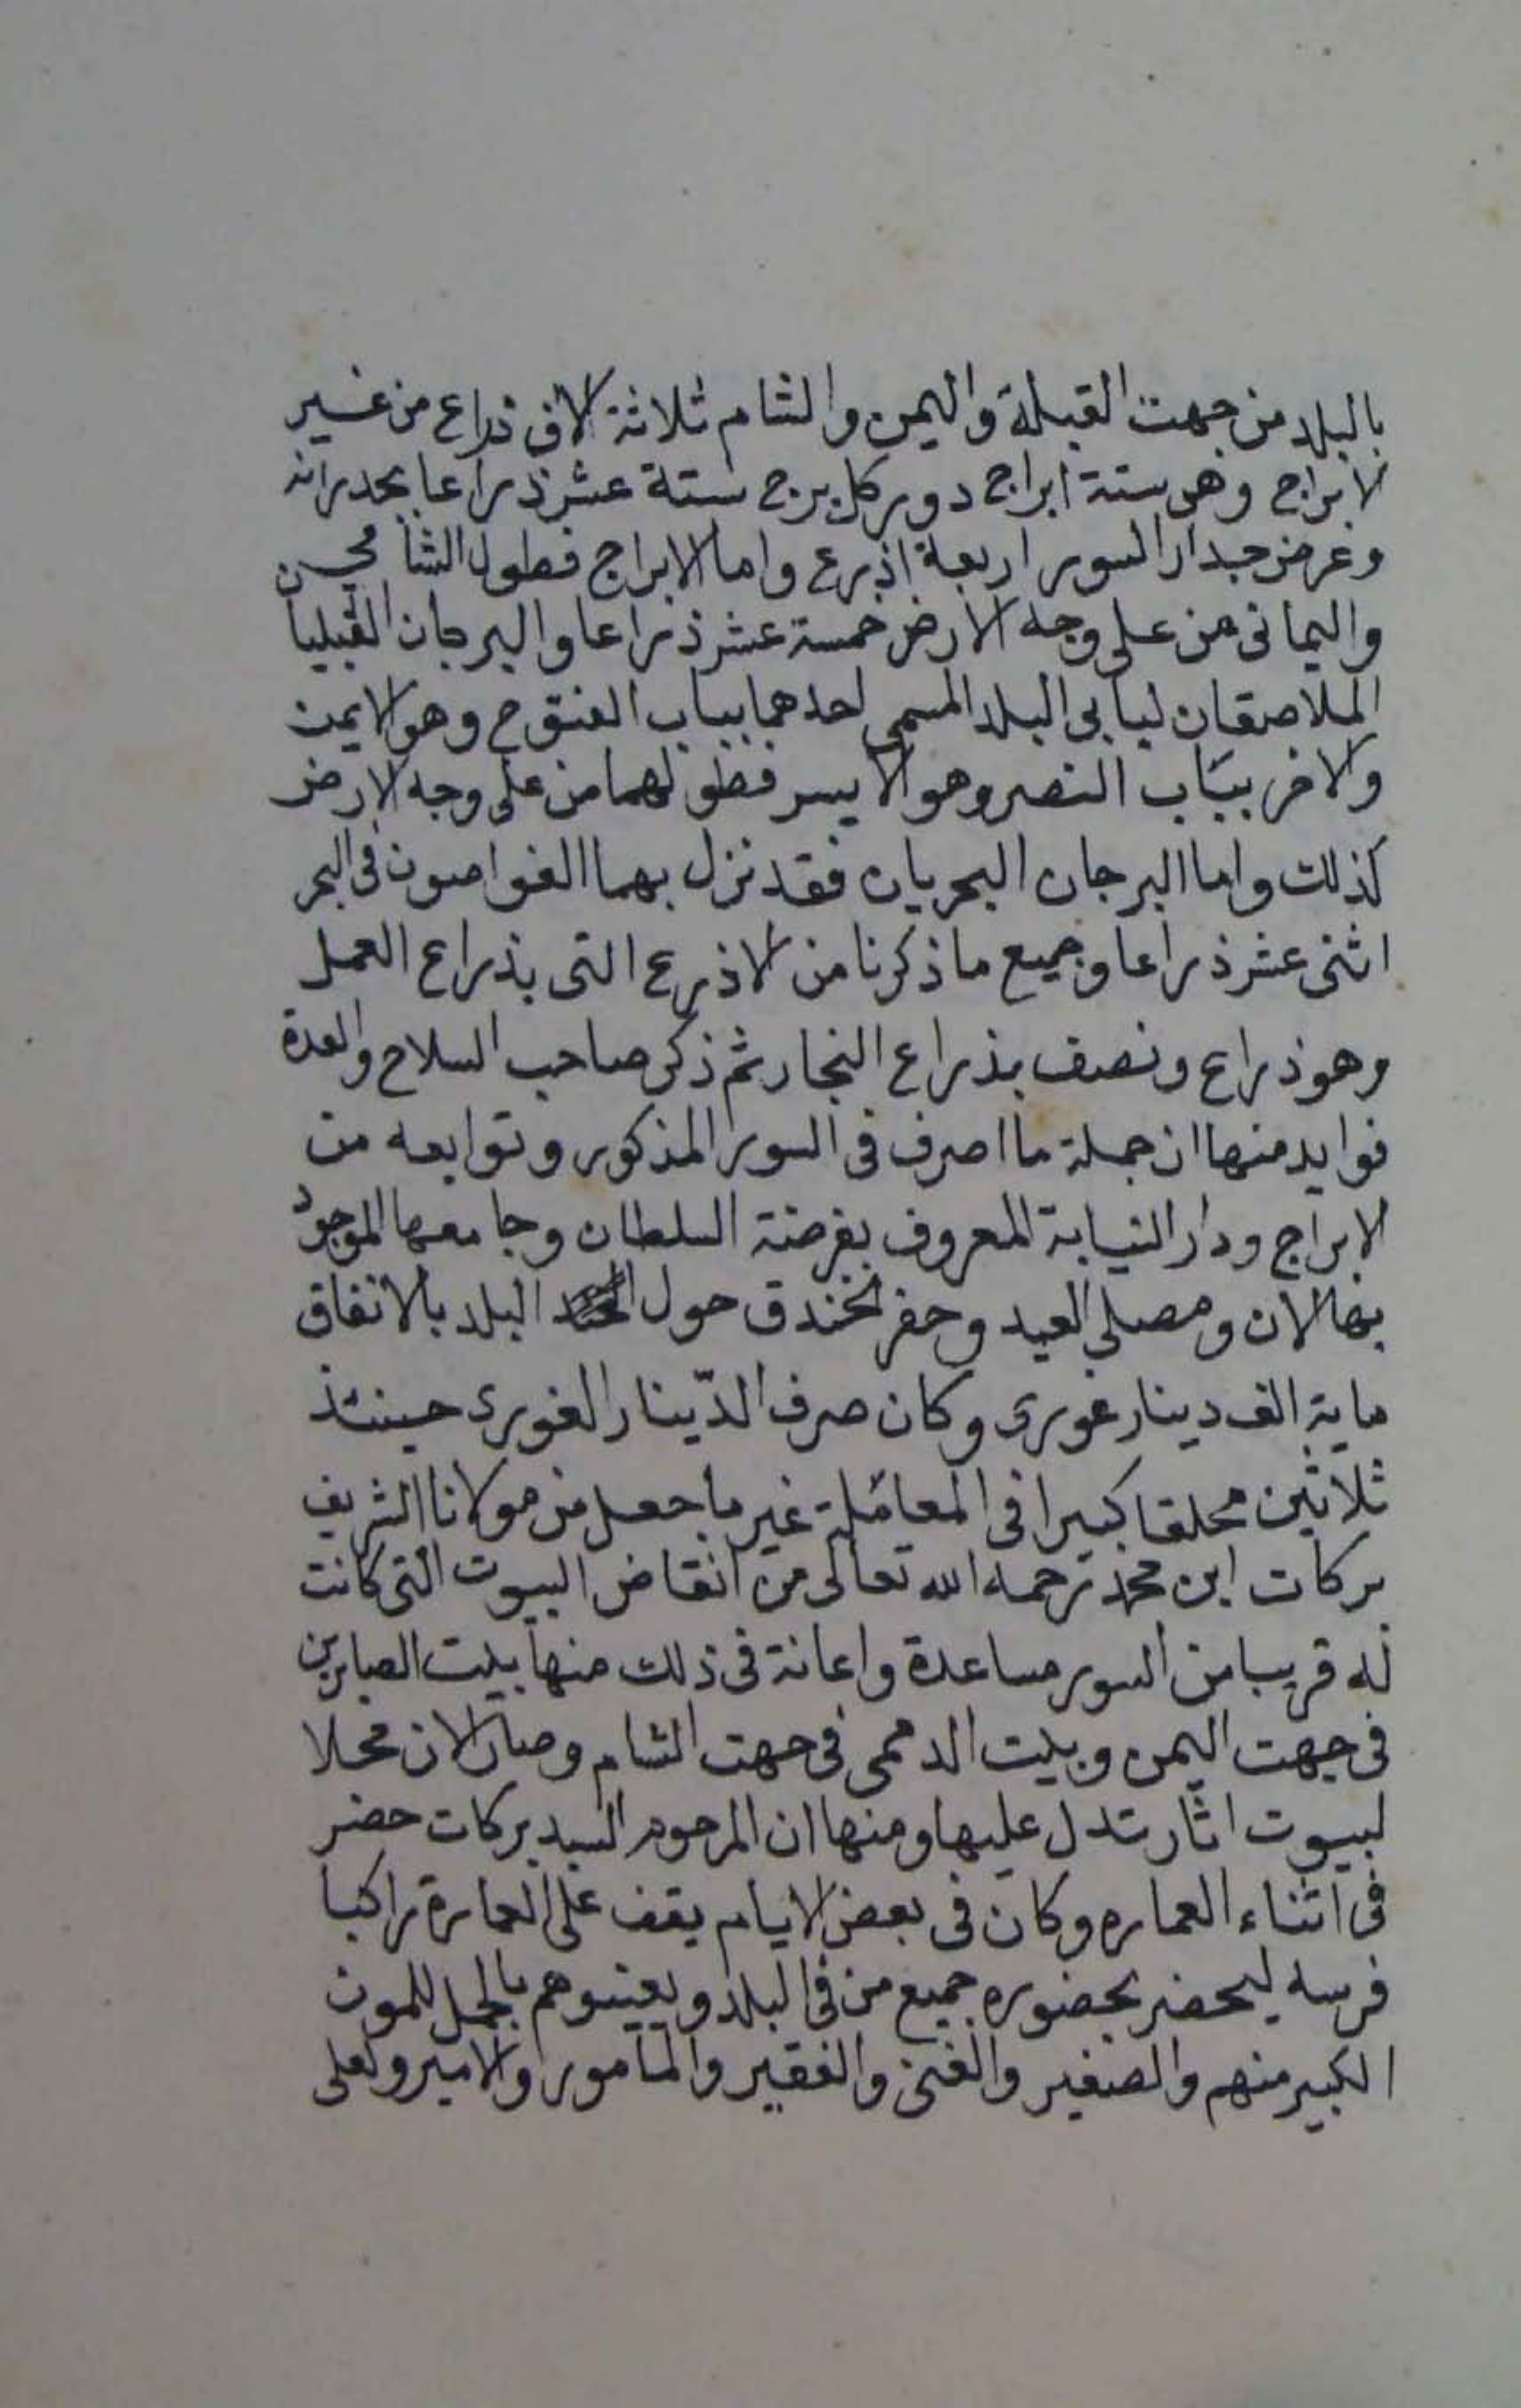 بالبلد من جهت القبلة واليمن والشام ثلاثة الاف ذراع من غير
الابراج وهى ستة ابراج دور كل برج ستة عشر ذراعا بجدرانه
وعرض جدار السور اربعة اذرع واما الابراج فطول الشامي
واليمانى من على وجه الارض خمسة عشر ذراعا والبرجان القبليان
الملاصقان لبابى البلد المسمى احدهما بباب الفتوح وهو الايمن
والاخر بباب النصر وهو الايسر فطولهما من على وجه الارض
كذلك واما البرجان البحريان فقد نزل بهما الغواصون فى البحر
اثنى عشر ذراعا وجميع ما ذكرنا من الاذرع التى بذراع العمل
وهو ذراع ونصف بذراع النجار ثم ذكر صاحب السلاح والعدة
فوايد منها ان جملة ما اصرف فى السور المذكور وتوابعه من
الابراج ودار النيابة المعروف بفرضة السلطان وجامعها الموجود
بها الان ومصلى العيد وحفر الخندق حول البلد بالاتفاق
ماية الف دينار غورى وكان صرف الدّينار الغورى حينئذ
ثلاثين محلقا كبيرا فى المعاملة غير ما جعل من مولانا الشريف
بركات ابن محمد رحمه الله تعالى من انقاض البيوت التى كانت
له قريبا من السور مساعدة واعانة فى ذلك منها بيت الصابرين
فى جهت اليمن وبيت فى جهت الشام وصار الان محلا
لبيوت اثار تدل عليها ومنها ان المرحوم السيد بركات حضر
فى اثناء العماره وكان فى بعض الايام يقف على العمارة راكبا
فرسه ليحضر بحضوره جميع من فى البلد ويعينوهم بالحمل للمون
الكبير منهم والصغير والغنى والفقير والمامور والامير ولعلى